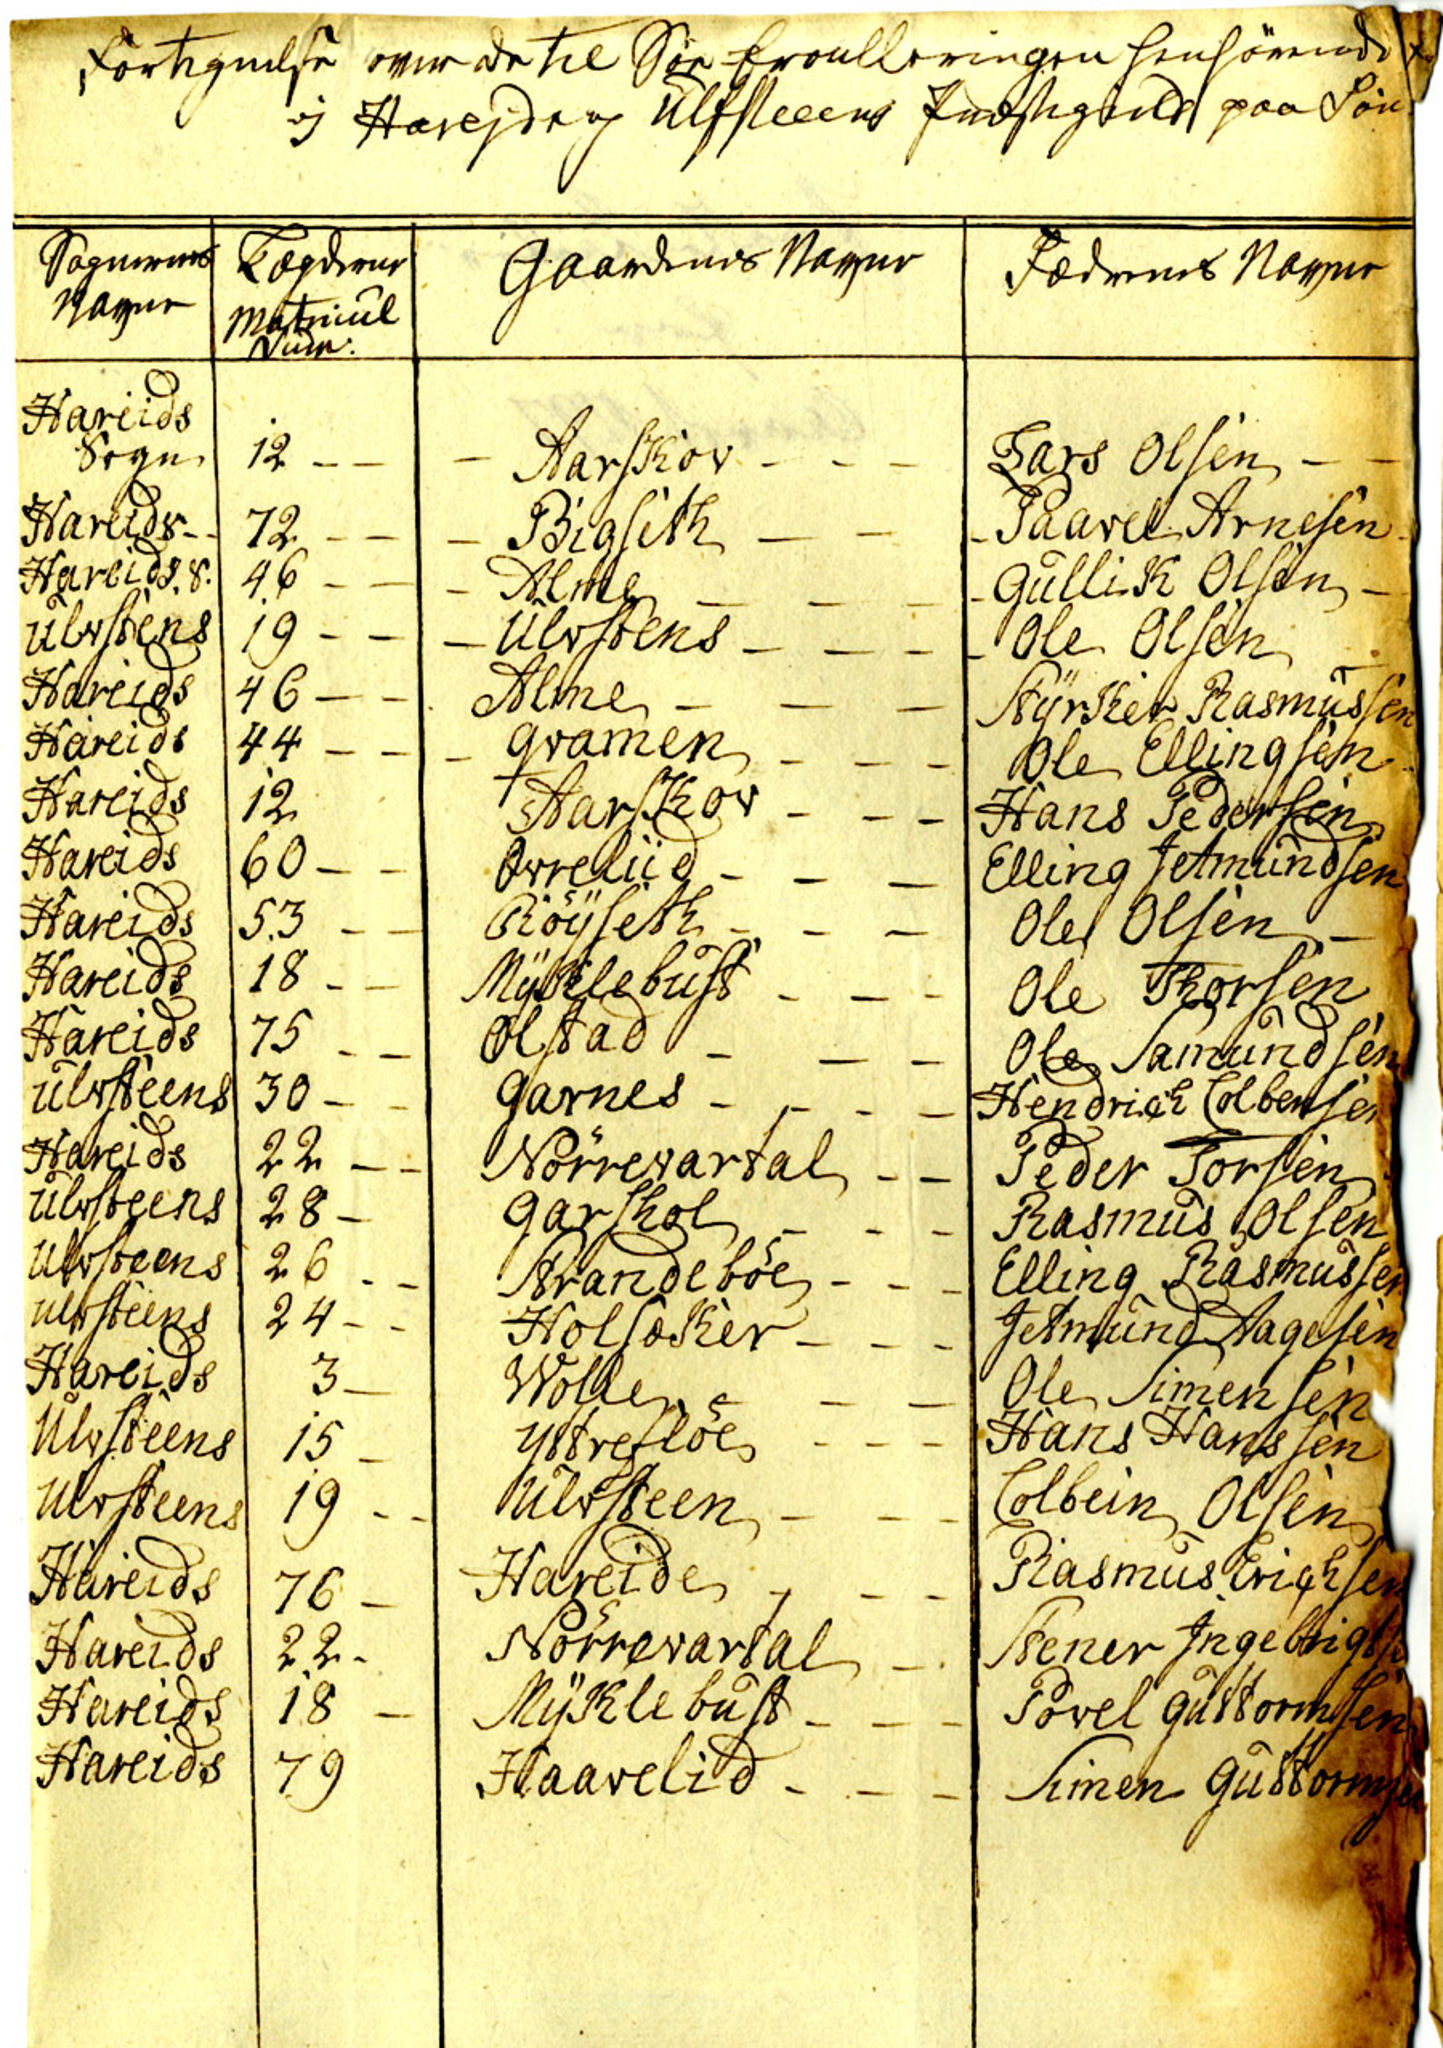 Fortegnelse over de til Söe Enroulleringen henhörende
i Harejds og Ulfsteens Præstegield paa Sön
Sognernes Navne | Lægdernes Matricul Num: | Gaardenes Navne | Fædrenes Navne
Hareids
Sogn 12 - - - Aarskov - - - Lars Olsen - -
Hareids - - 72 - - - Bigseth - - - Paavel Arnesen
Hareids S. 46 - - - Alme - - - Gullik Olsen -
Ulvstens 19 - - - Ulvstens - - - Ole Olsen
Hareids 46 - - Alme - - - Styrker Rasmussen
Hareids 44 - - - Qvamen - - - Ole Ellingsen
Hareids 12 Aarskov - - - Hans Pedersen
Hareids 60 - - Ovreliid - - - Elling Jetmundsen
Hareids 53 - - Röyseth - - - Ole Olsen -
Hareids 18 - - Myklebust - - - Ole Thorsen
Hareids 75 - - Olstad - - - Ole Samundsen
Ulvsteens 30 - - Garnes - - - - Hendrich Colbensen
Hareids 22 - - Nörrevartal - - Peder Torsen
Ulvsteens 28 - Garshol - - - Rasmus Olsen
Ulvsteens 26 - - Strandeböe - - - Elling Rasmussen
Ulvsteens 24 - - Holsæker - - - Jetmund Aagesen
Hareids 3 - Wolle - - - Ole Simensen
Ulvsteens 15 - Yttreflöe - - - Hans Hanssen
Ulvsteens 19 - - Ulvsteen - - - Colbein Olsen
Hareids 76 - Hareide - - - Rasmus Erichsen
Hareids 22 - Nörrevartal - Stener Ingebrigtse
Hareids 18 - Myklebust - - - Povel Guttormsen
Hareids 79 Haavelid - - - Simen Guttormsen